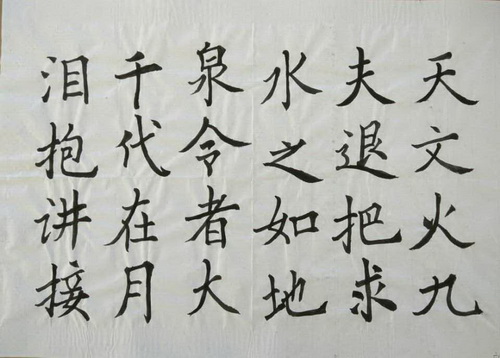 天文火九
夫退把求
水之如地
泉令者大
千代在月
泪抱讲接